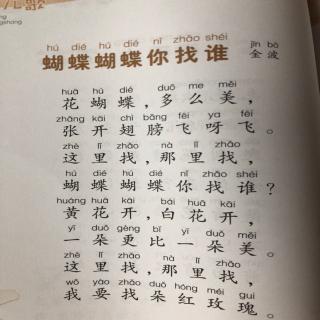 hú dié hú dié nǐ zhǎo shéi
蝴蝶蝴蝶你找谁
jīn bō
金波
huā hú dié duō me měi
花蝴蝶，多么美，
zhāng kāi chì bǎng fēi ya fēi
张开翅膀飞呀飞。
zhè lǐ zhǎo nà lǐ zhǎo
这里找，那里找，
hú dié hú dié nǐ zhǎo shéi
蝴蝶蝴蝶你找谁？
huáng huā kāi bái huā kāi
黄花开，白花开，
yì duǒ gèng bǐ yì duǒ měi
一朵更比一朵美。
zhè lǐ zhǎo nà lǐ zhǎo
这里找，那里找，
wǒ yào zhǎo duǒ hóng méi gui
我要找朵红玫瑰。